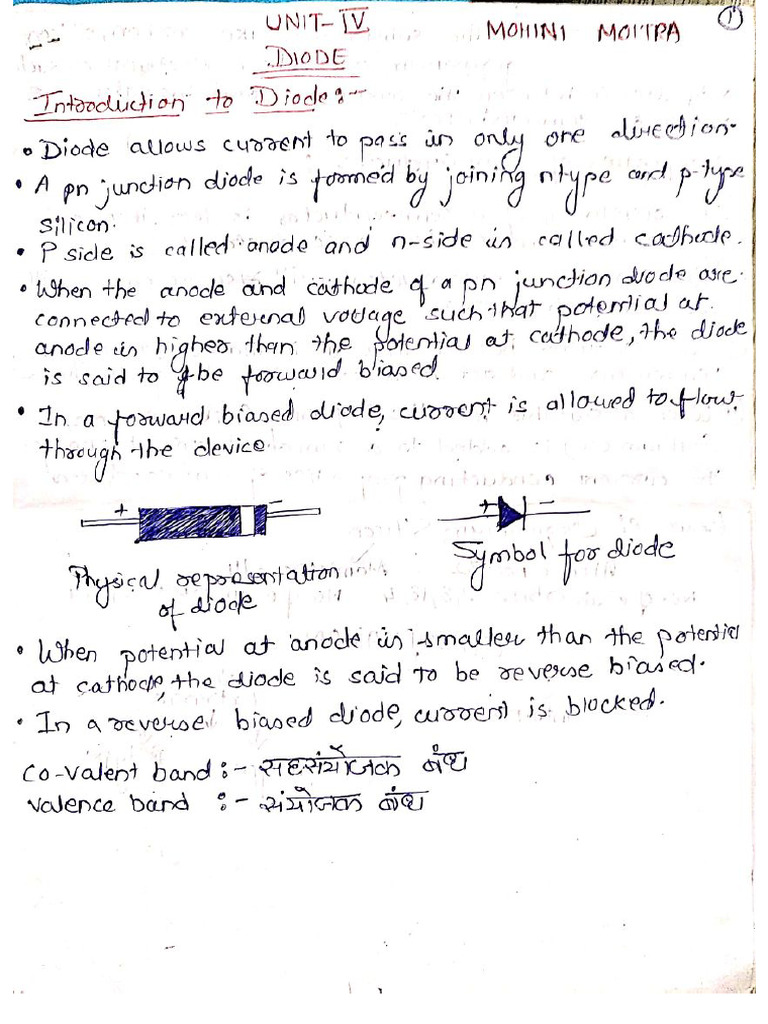 UNIT-IV
MOHINI MOITRA
1
DIODE
Introduction to Diode:-
• Diode allows current to pass in only one direction.
• A pn junction diode is formed by joining n type and p-type
silicon.
• P side is called anode and n-side is called cathode.
• When the anode and cathode of a pn junction diode are
connected to external voltage such that potential at
anode is higher than the potential at cathode, the diode
is said to be forward biased.
• In a forward biased diode, current is allowed to flow
through the device.
+ -
+ -
Physical representation
of diode
Symbol for diode
• When potential at anode is smaller than the potential
at cathode, the diode is said to be reverse biased.
• In a reverse biased diode, current is blocked.
Co-valent band :- सहसंयोजक बंध
valence band :- संयोजक बंध